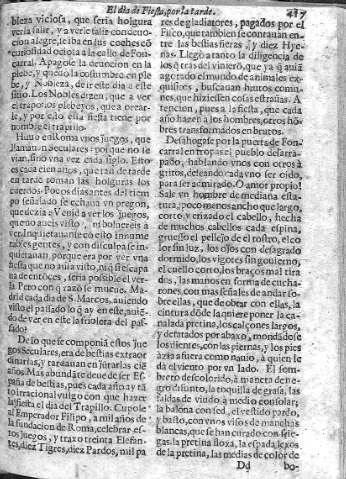 El dia de Fiesta, por la tarde.
bleza viciosa, que seria holgura
verla salir, y a verle salir con deuo-
cion alegre, se iba en sus coches cō
curiosidad ociosa a la calle de Fon-
carral. Apagòse la deuocion en la
plebe, y quedò la costumbre en ple
be, y Nobleza, de ir este dia a este
sitio. Los Nobles dizen, que a ver
el trapo los plebeyos, que a trotar-
le, y por esto esta fiesta tiene por
nombre el trapillo.
Huuo en Roma vnos juegos, que
llamauan Seculares: porque no se
vian, sino vna vez cada siglo. Esto
es cada cien años, que tan de tarde
en tarde toman las holguras los
cuerdos. Pocos dias antes del tiem
po señalado se echaua vn pregon,
que dezia: Venid a ver los juegos,
que no aueis visto, ni bolvereis à
ver. Inquietauanse con esto innume
rables gentes, y con disculpa se in-
quietauan, porque era por ver vna
fiesta que no auia visto, ni
de entonces, seria possible el ver-
la. Pero con q razō se mueue Ma-
drid cada dia de S. Marcos, auiendo
visto el passado lo q ay en este, auiē-
do de ver en este la friolera del pas-
sado?
De lo que se componiā estos jue
gos Seculares, era de bestias extraor
dinarias, y tardauan en jūtarlas ciē
años. Mas abundāte deue de ser Es-
paña de bestias, pues cada año ay tā
to irracional vulgo con que hazer
la fiesta el dia del Trapillo. Cupole
al Emperador Filipo, a mil años de
la fundacion de Roma, celebrar es-
tos juegos, y traxo treinta Elefan-
tes, diez Tigres, diez Pardos, mil pa
res de gladiatores, pagados por el
Fisco, que tambien se contauan en-
tre las bestias fieras, y diez Hye-
nas. Llegò a tanto la diligencia de
los q tras del vinierō, que ya q auiā
agotado el mundo de animales ex-
quisitos, buscauan brutos comu-
nes, que hiziessen cosas estrañas. A-
tencion, pues a la fiesta, que cada
año hazen a los hombres, otros hō
bres transformados en brutos.
Desahogase por la puerta de Fon-
carral en tropas el pueblo desarra-
pado, hablando vnos con otros à
gritos, deseando cada vno ser oido,
para ser admirado. O amor propio!
Sale vn hombre de mediana esta-
tura, poco menos ancho que largo,
corto y erizado el cabello, hecha
de muchos cabellos cada espina,
gruesso el pellejo de el rostro, el co
lor sin luz, los ojos con desagrado
dormido, los vigores sin gouierno,
el cuello corto, los braços mal tira
dos, las manos en forma de cucha-
rones, con mas señales de andar so-
bre ellas, que de obrar con ellas, la
cintura dōde la quiere poner la ca-
nalada pretina, los calçones largos,
y desatados por abaxo, mondādose
los dientes, con las piernas, y los pies
azia afuera como nauio, à quien le
da el viento por vn lado. El som-
brero descolorido, à manera de ne-
gro difunto, la toquilla de grasa, las
faldas de viudo à medio consolar,
la balona con sed, el vestido pardo,
y basto, con vnos visos de manchas
blancas, que se han curado con sele-
gas, la pretina floxa, la espada lexos
de la pretina, las medias de color de
Dd
bo-